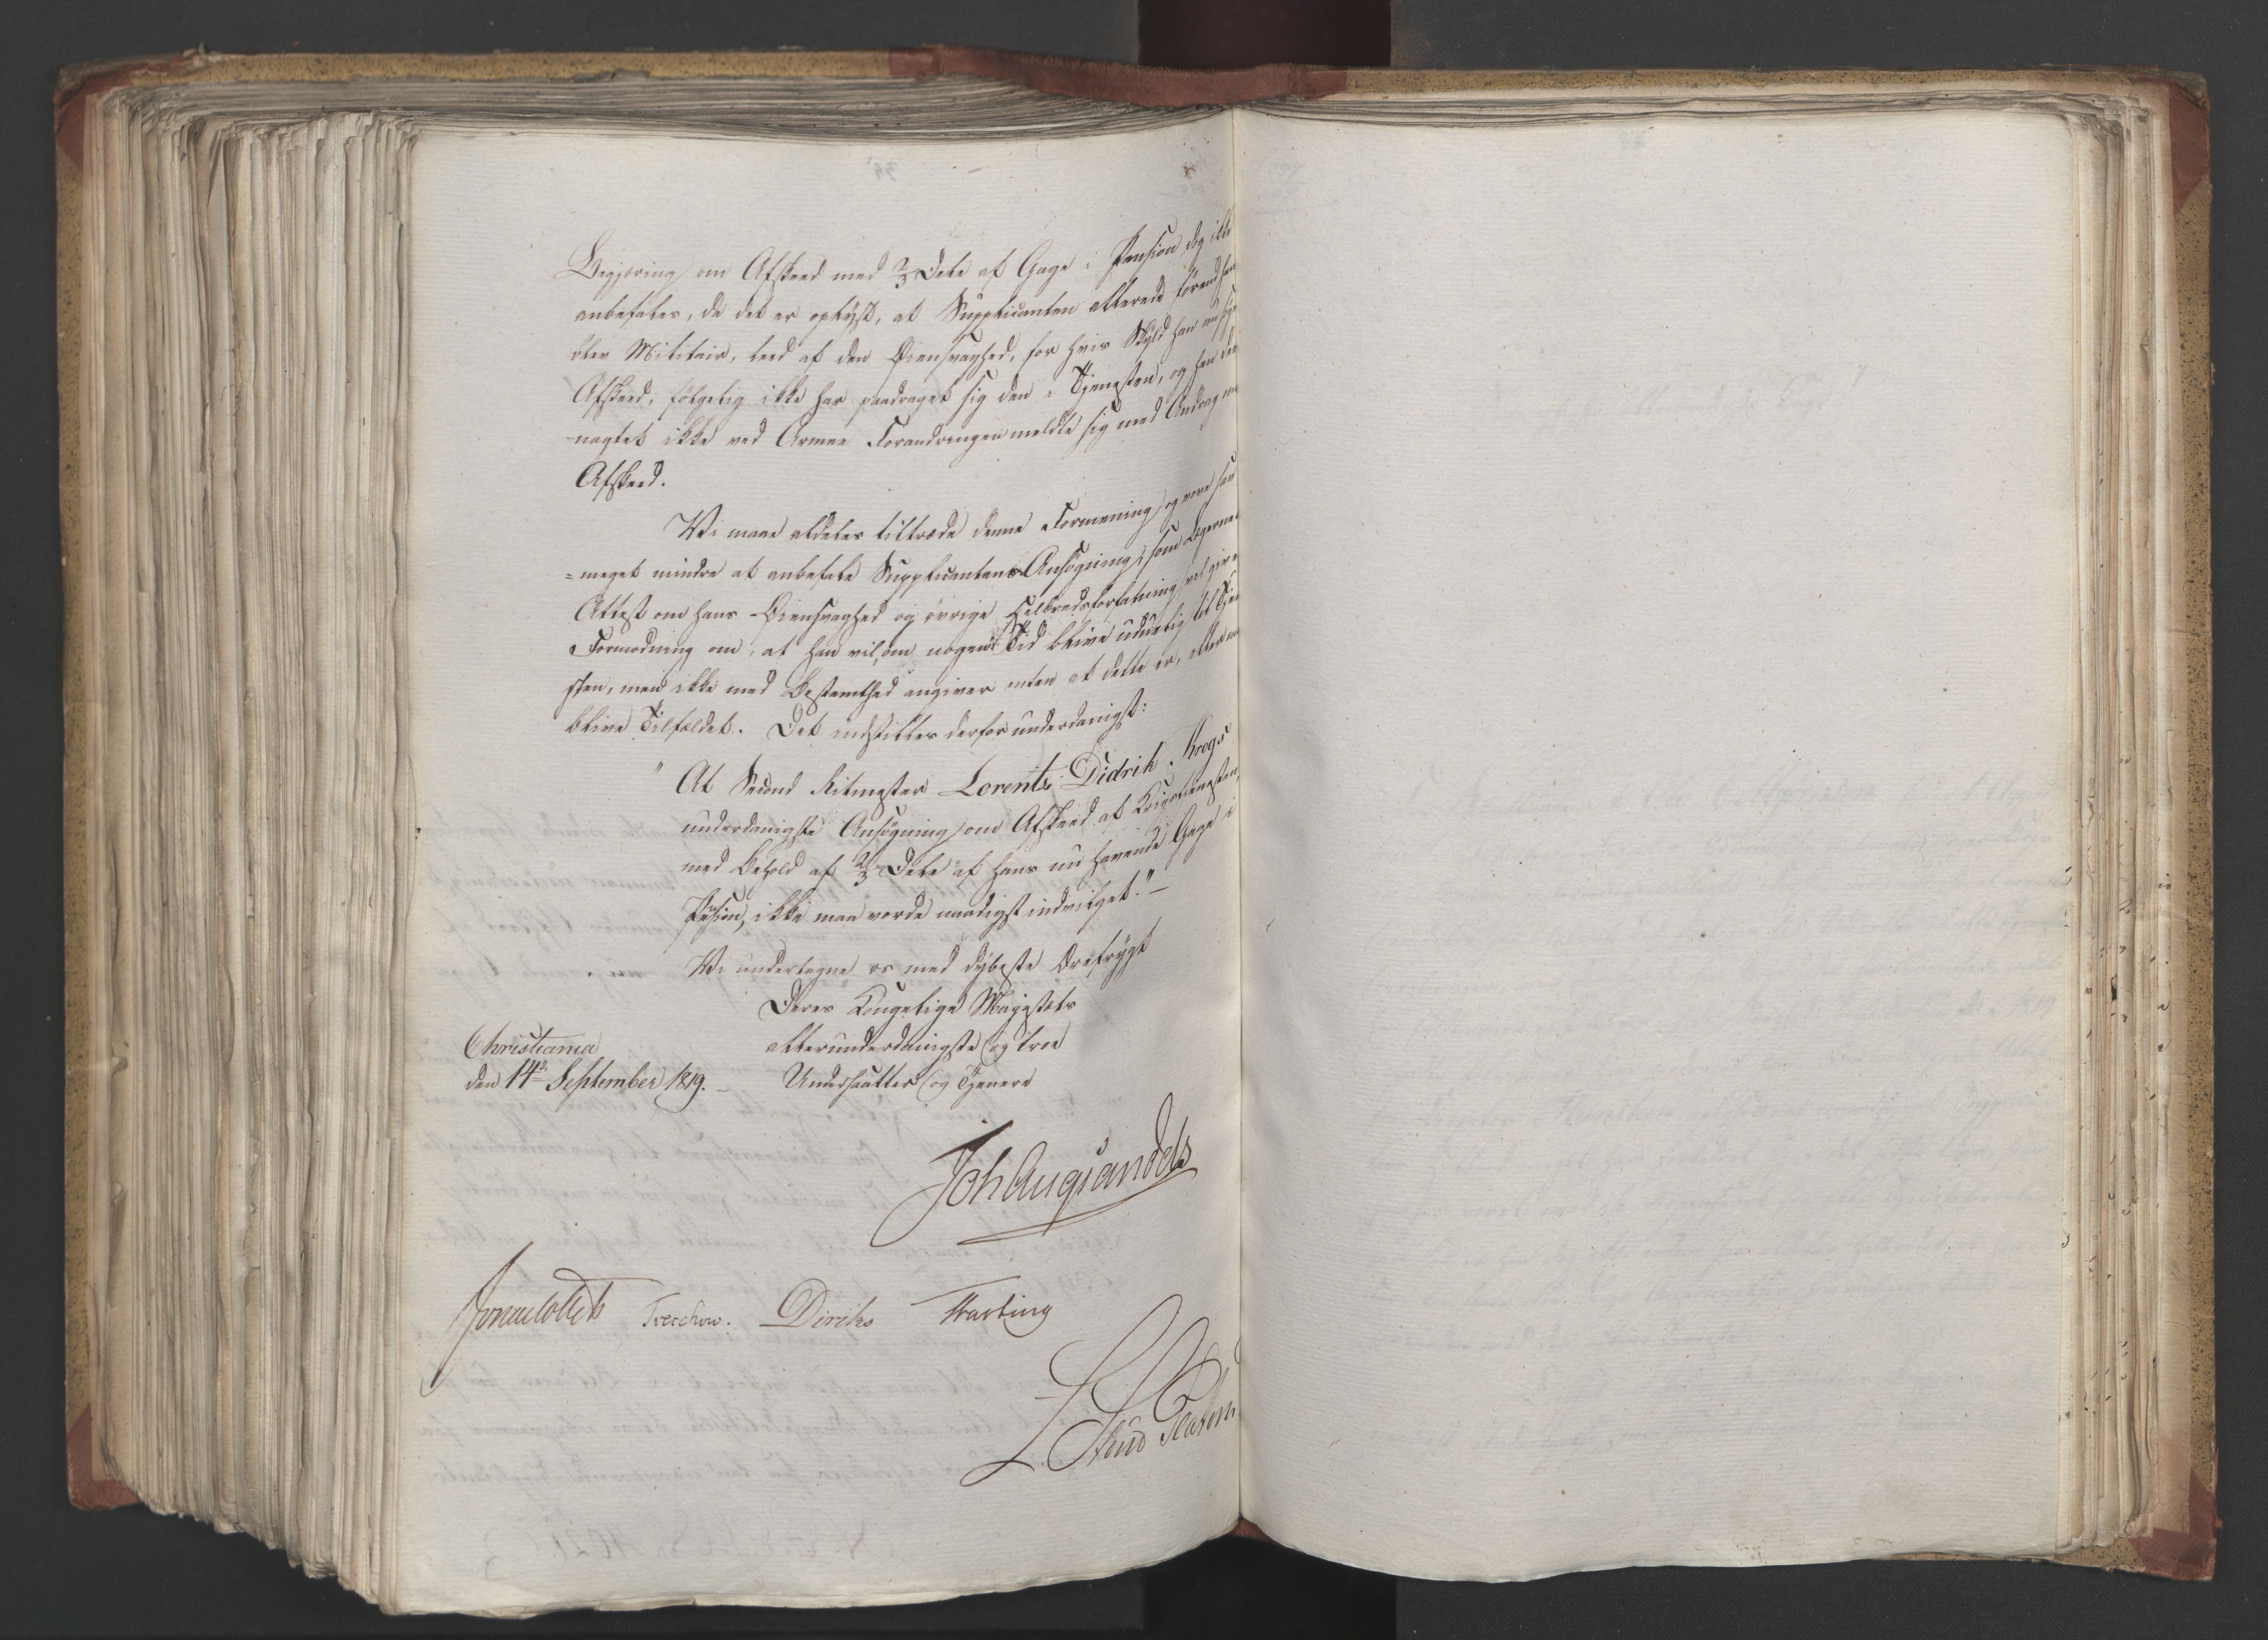 Begjæring om Afskeed med 2/3 Dele af Gage i Pension, dog ikke
anbefales, da det er oplyst, at Supplicanten allerede førend han
blev Militair, leed af den Øiensvaghed, for hvis Skyld han nu søger
Afskeed, følgelig ikke har paadraget sig den i Tjenesten, og han des
uagtet ikke ved Armee Forandringen meldte sig med Andrag om
Afskeed.
Vi maae aldeles tiltræde denne Formening, og maae saa
=meget mindre at anbefale Supplicantens Ansøgning, som Lægernes
Attest om hans Øiensvaghed og øvrige Helbredsforfatning vel giver
Formodning om, at han vil, om nogen Tid blive uduelig til Tjene
sten, men ikke med Bestemthed angiver enten at dette er, eller vil
blive Tilfældet. Det indstilles derfor underdanigst:
" At Second Ritmester Lorentz Didrik Krogs
underdanigste Ansøgning om Afskeed af Krigstienesten,
med Behold af 2/3 Dele af hans nu havende Gage i
Pension, ikke maa vorde naadigst indvilget." —
Vi undertegne os med dybeste Ærefrygt
Deres Kongelige Majestæts
Christiania allerunderdanigste og troe
den 14de September 1819. — Undersaatter og Tjenere
Joh Aug Sandels
Jonas Collett Treschow. Diriks Fasting
L. Stud Platou